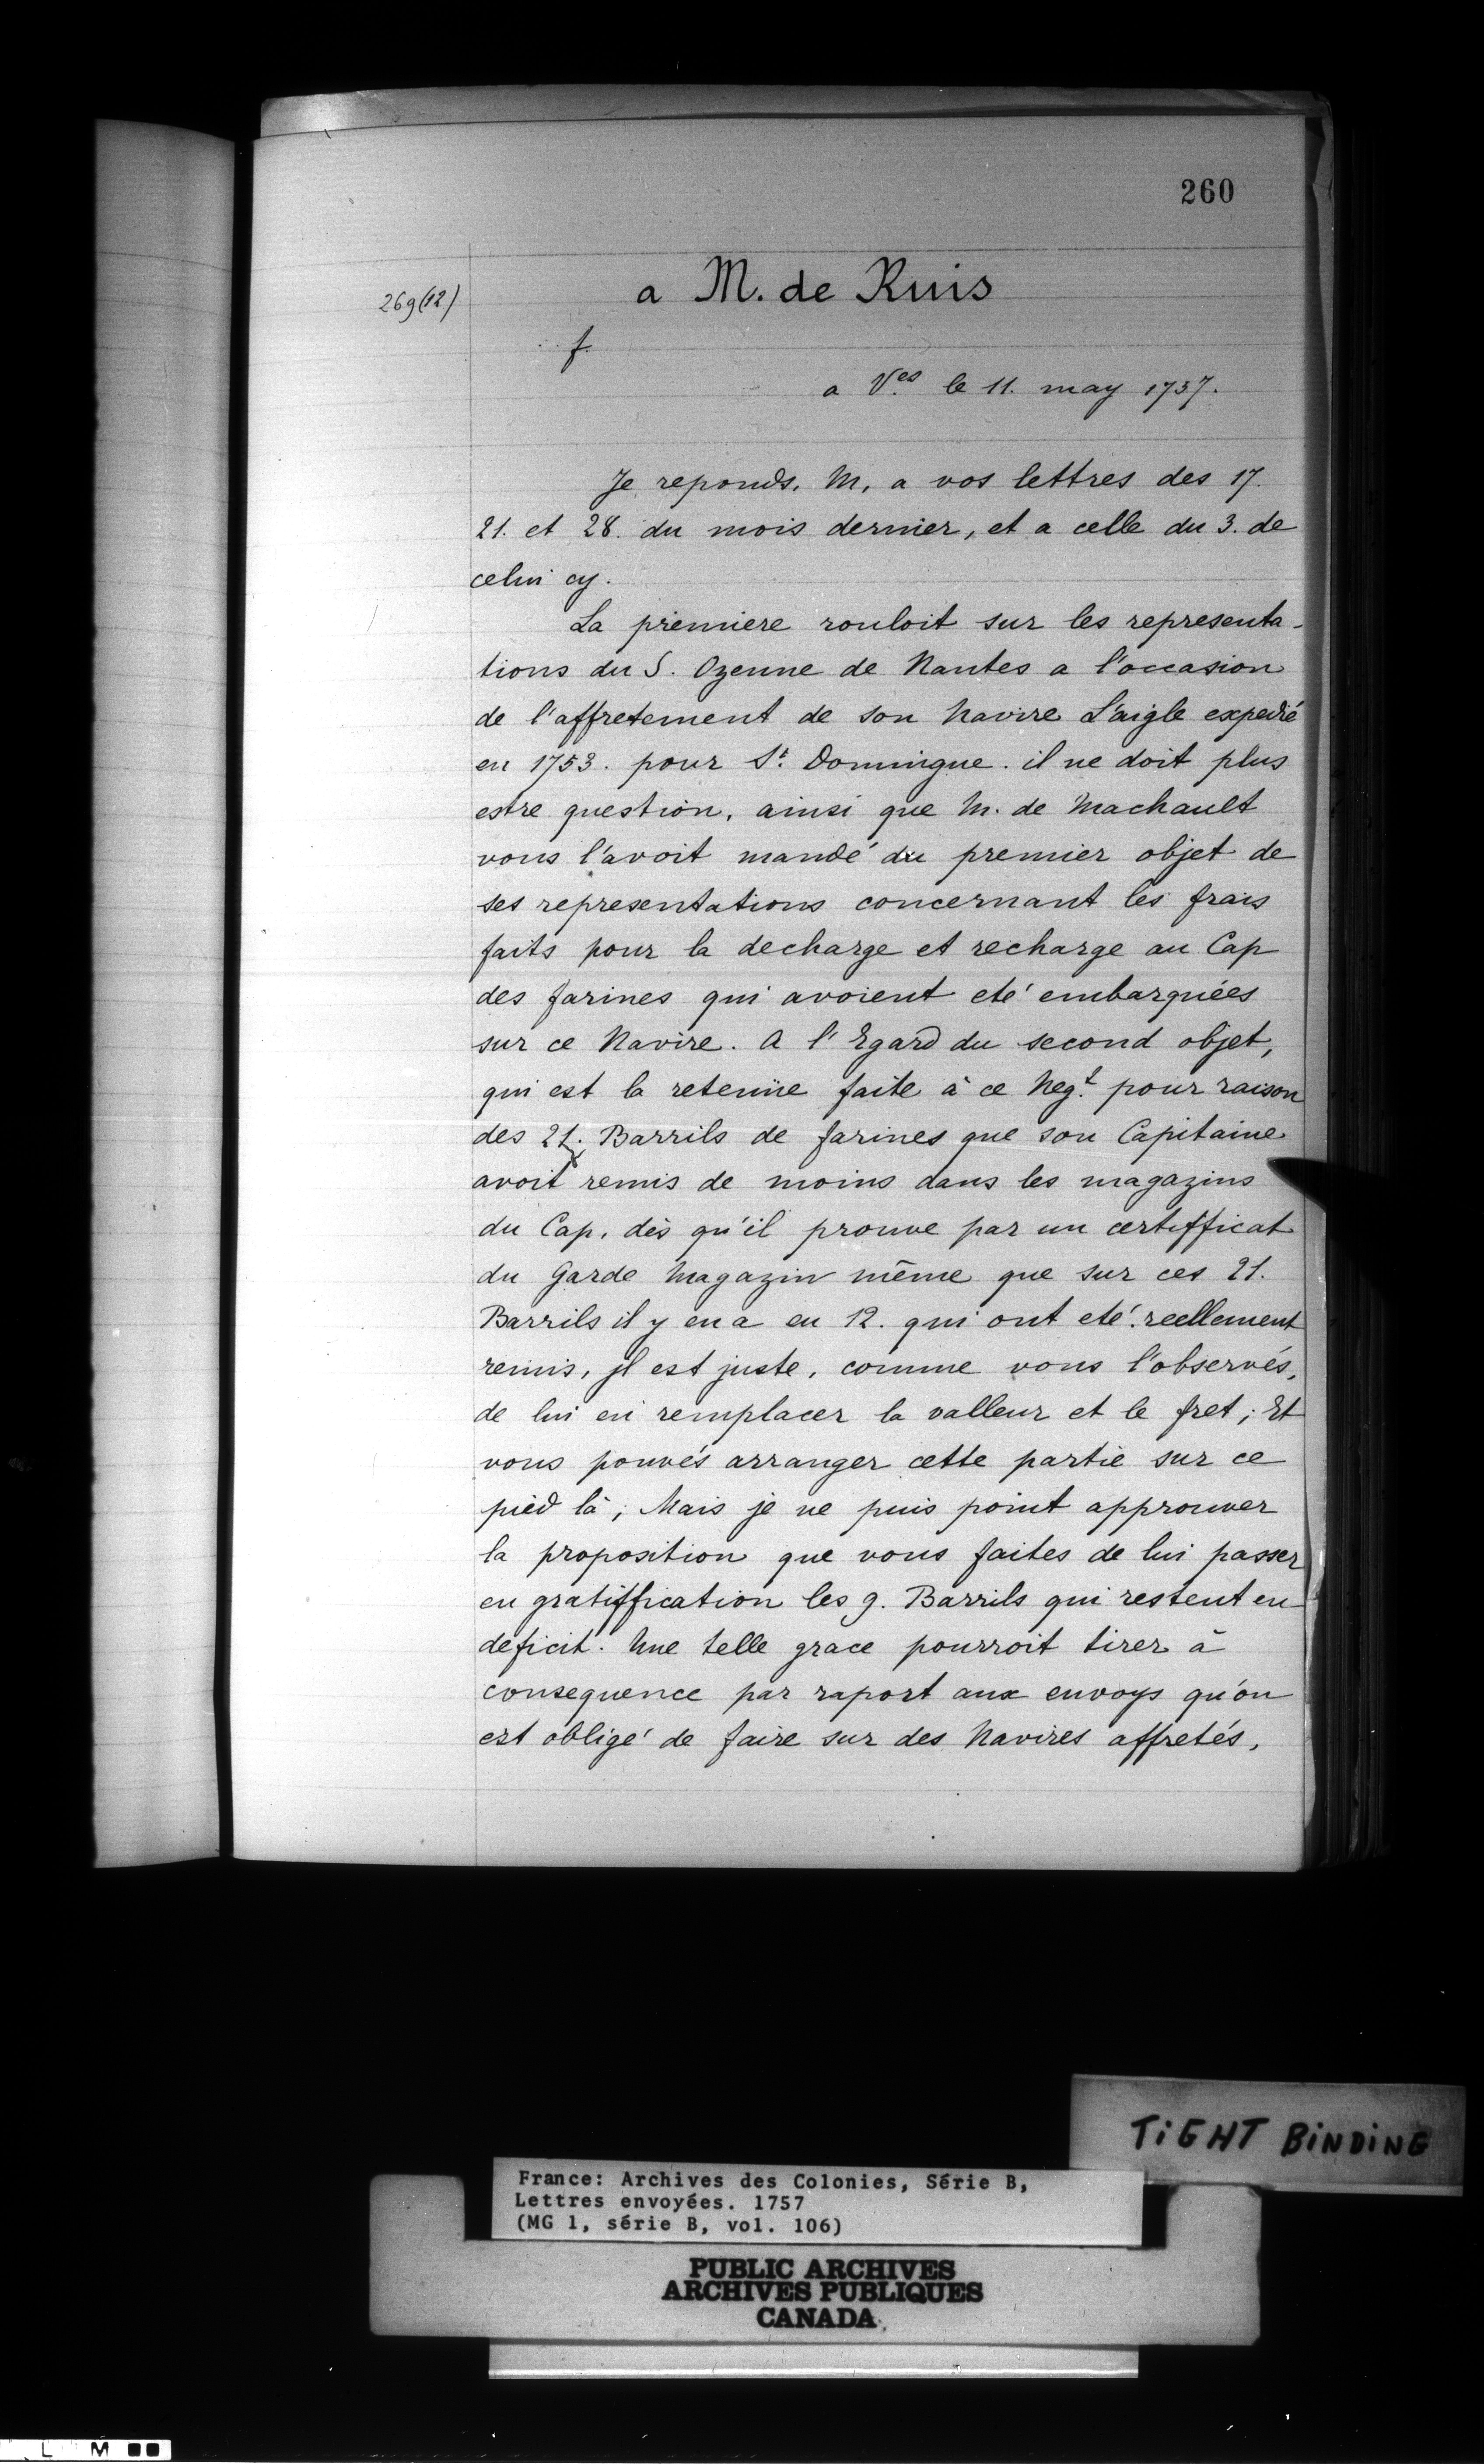 260
269(12)
a M. de Ruis
f.
a V.es le 11. may 1757.
Je reponds, M, a vos lettres des 17.
21. et 28. du mois dernier, et a celle du 3. de
celui cy.
La premiere rouloit sur les representa-
tions du S. Ozenne de Nantes a l'occasion
de l'affretement de son Navire L'aigle expedié
en 1753. pour St. Domingue. il ne doit plus
estre question, ainsi que M. de Machault
vous l'avoit mandé du premier objet de
ses representations concernant les frais
faits pour la decharge et recharge au Cap
des farines qui avoient eté embarquées
sur ce Navire. A l'Egard du second objet,
qui est la retenüe faite à ce Negt. pour raison
des 21. Barrils de farines que son Capitaine
avoit remis de moins dans les magazins
du Cap, dès qu'il prouve par un certifficat
du Garde Magazin même que sur ces 21.
Barrils il y en a eu 12. qui ont eté reellement
remis, jl est juste, comme vous l'observés,
de lui en remplacer la valleur et le fret; Et
vous pouvés arranger cette partie sur ce
pied là; Mais je ne puis point approuver
la proposition que vous faites de lui passer
en gratiffication les 9. Barrils qui restent en
deficit. Une telle grace pourroit tirer à
consequence par raport aux envoys qu'on
est obligé de faire sur des Navires affretés,
TiGHT BiNDiNG
France: Archives des Colonies, Série B,
Lettres envoyées. 1757
(MG 1, série B, vol. 106)
PUBLIC ARCHIVES
ARCHIVES PUBLIQUES
CANADA
L M